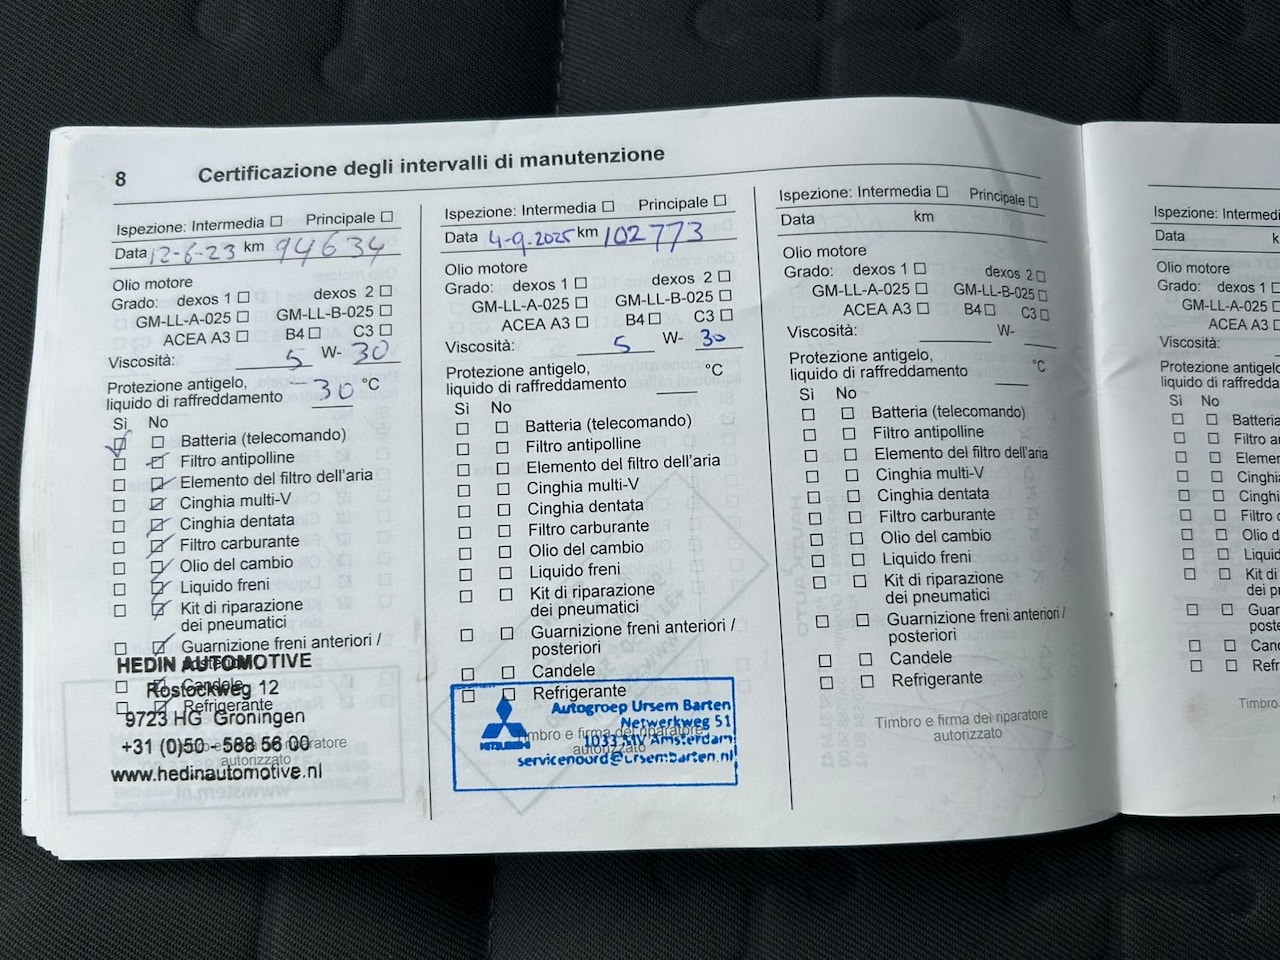 8 Certificazione degli intervalli di manutenzione
Ispezione: Intermedia Principale
Data 12-6-23 km 94634
Olio motore
Grado: dexos 1 dexos 2
GM-LL-A-025 GM-LL-B-025
ACEA A3 B4 C3
Viscosità: 5 W- 30
Protezione antigelo,
liquido di raffreddamento -30 °C
Sì No
Batteria (telecomando)
Filtro antipolline
Elemento del filtro dell'aria
Cinghia multi-V
Cinghia dentata
Filtro carburante
Olio del cambio
Liquido freni
Kit di riparazione
dei pneumatici
Guarnizione freni anteriori /
posteriori
Candele
Refrigerante
Timbro e firma del riparatore
autorizzato
HEDIN AUTOMOTIVE
Rostockweg 12
9723 HG Groningen
+31 (0)50 - 588 56 00
www.hedinautomotive.nl
Ispezione: Intermedia Principale
Data 4-9-2025 km 102773
Olio motore
Grado: dexos 1 dexos 2
GM-LL-A-025 GM-LL-B-025
ACEA A3 B4 C3
Viscosità: 5 W- 30
Protezione antigelo,
liquido di raffreddamento °C
Sì No
Batteria (telecomando)
Filtro antipolline
Elemento del filtro dell'aria
Cinghia multi-V
Cinghia dentata
Filtro carburante
Olio del cambio
Liquido freni
Kit di riparazione
dei pneumatici
Guarnizione freni anteriori /
posteriori
Candele
Refrigerante
Timbro e firma del riparatore
autorizzato
MITSUBISHI
Autogroep Ursem Barten
Netwerkweg 51
1033 MV Amsterdam
servicenoord@ursembarten.nl
Ispezione: Intermedia Principale
Data km
Olio motore
Grado: dexos 1 dexos 2
GM-LL-A-025 GM-LL-B-025
ACEA A3 B4 C3
Viscosità: W-
Protezione antigelo,
liquido di raffreddamento °C
Sì No
Batteria (telecomando)
Filtro antipolline
Elemento del filtro dell'aria
Cinghia multi-V
Cinghia dentata
Filtro carburante
Olio del cambio
Liquido freni
Kit di riparazione
dei pneumatici
Guarnizione freni anteriori /
posteriori
Candele
Refrigerante
Timbro e firma del riparatore
autorizzato
Ispezione: Intermedi
Data k
Olio motore
Grado: dexos 1
GM-LL-A-025
ACEA A3
Viscosità:
Protezione antigelo,
liquido di raffredda
Sì No
Batteria
Filtro an
Elemen
Cinghia
Cinghia
Filtro c
Olio d
Liquid
Kit di
dei p
Guar
poste
Cand
Refr
Timbro